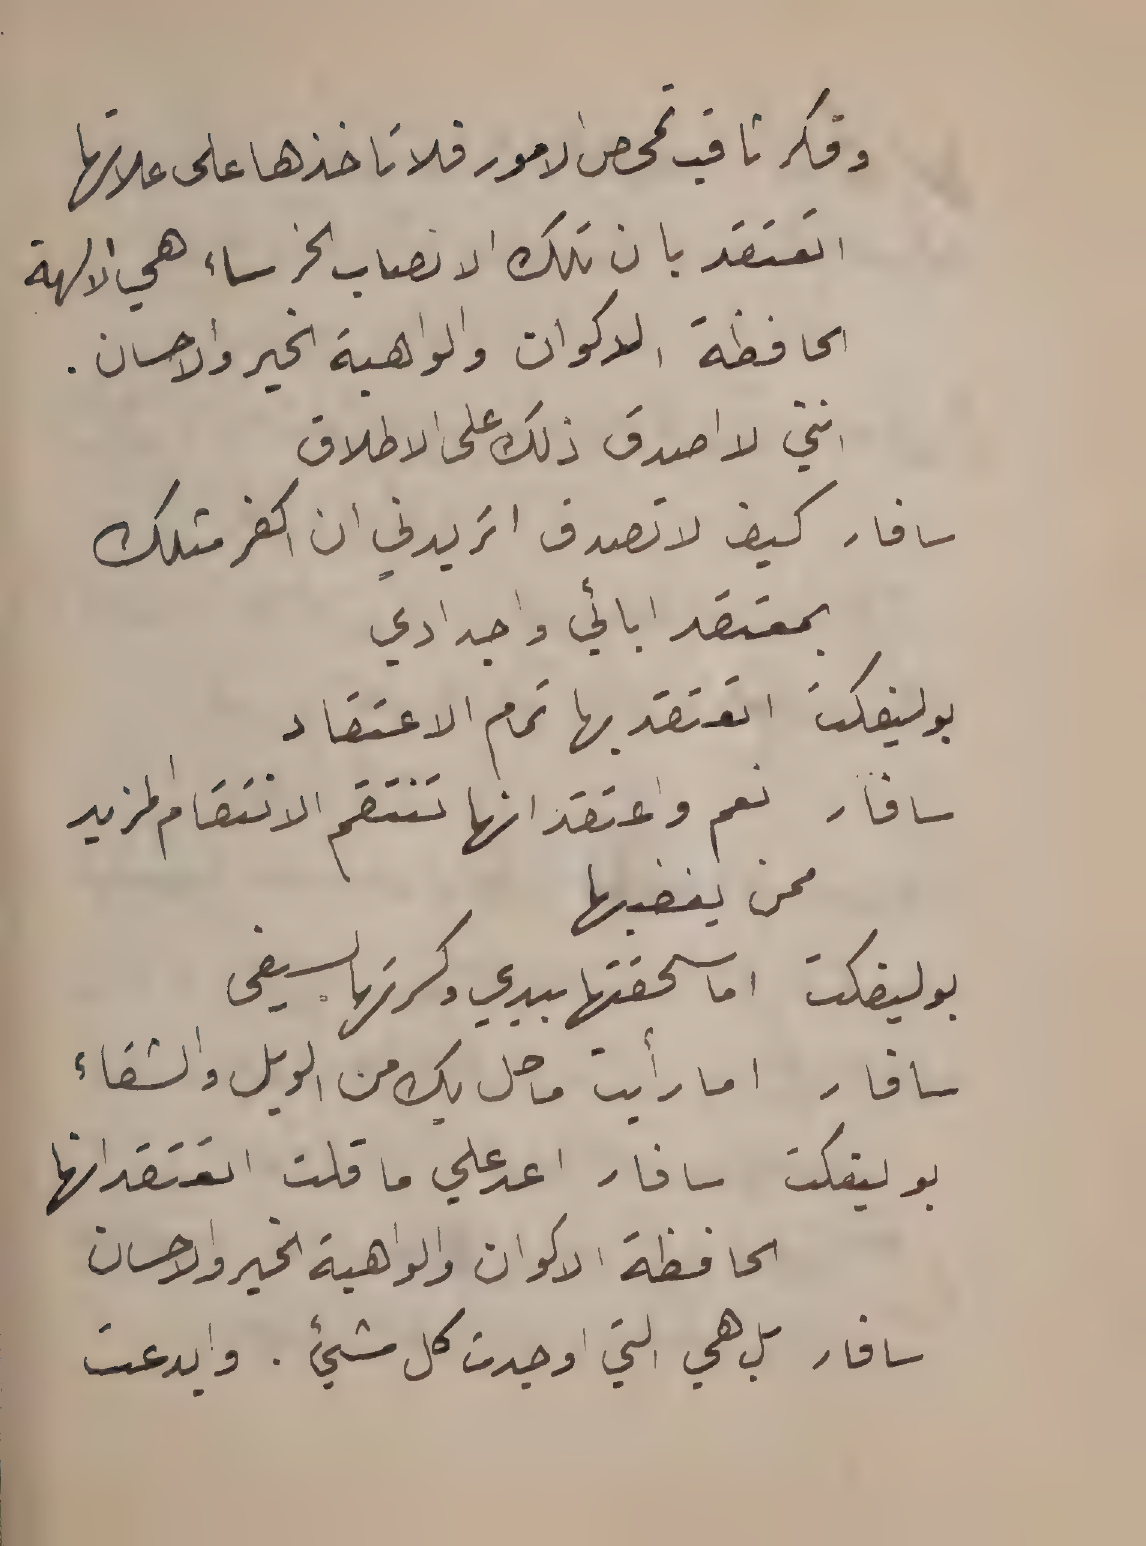 وفكر ثاقب تمحص الامور فلا تاخذها على علاتها
اتعتقد بان تلك الانصاب الخرساء هي الالهة
الحافظة الاكوان والواهبة الخير والاحسان .
انني لا اصدق ذلك على الاطلاق
سافار كيف لا تصدق اتريدني ان اكفر مثلك
بمعتقد ابائي واجدادي
بوليفكت اتعتقد بها تمام الاعتقاد
سافار نعم واعتقد انها تنتقم الانتقام المزيد
ممن يغضبها
بوليفكت اما سحقتها بيدي وكسرتها بسيفى
سافار اما رأيت ما حل بك من الويل والشقاء
بوليفكت سافار اعد علي ما قلت اتعتقد انها
الحافظة الاكوان والواهبة الخير والاحسان
سافار بل هي التي اوجدت كل شيئ . وابدعت